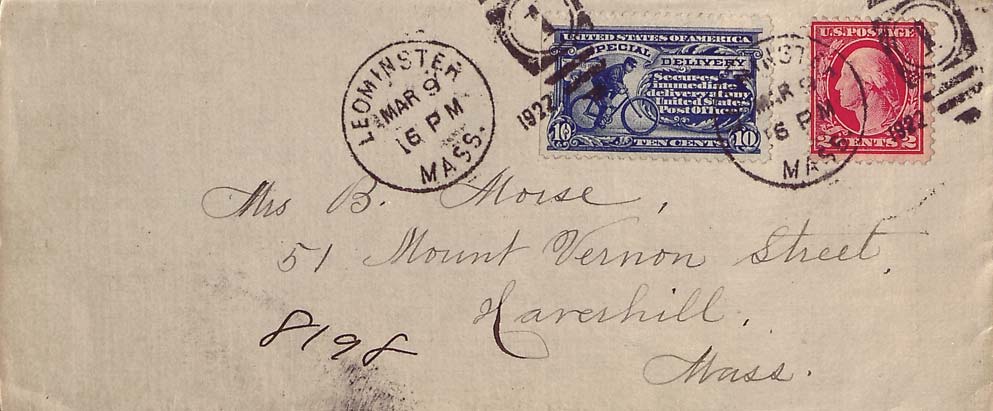 LEOMINSTER
MAR 9
6 PM
MASS.
1922
UNITED STATES OF AMERICA
SPECIAL DELIVERY
Secures
immediate
delivery at any
United States
Post Office
10 TEN CENTS 10
U.S. POSTAGE
2 CENTS 2
MINSTER
MAR 9
6 PM
MASS.
1922
Mrs B. Morse,
51 Mount Vernon Street,
Haverhill,
Mass.
8198